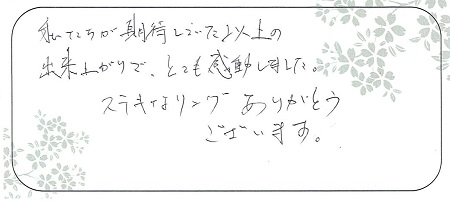 私たちが期待していた以上の
出来上がりで、とても感動しました。
ステキなリング ありがとう
ございます。